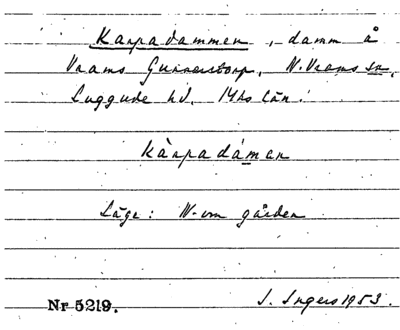 Karpadammen, damm å
Vrams Gunnarstorp, N. Vrams sn,
Luggude hd, Mhs län.
kàrpadámen
Läge: N. om gården
Nr 5219. I. Ingers 1953.